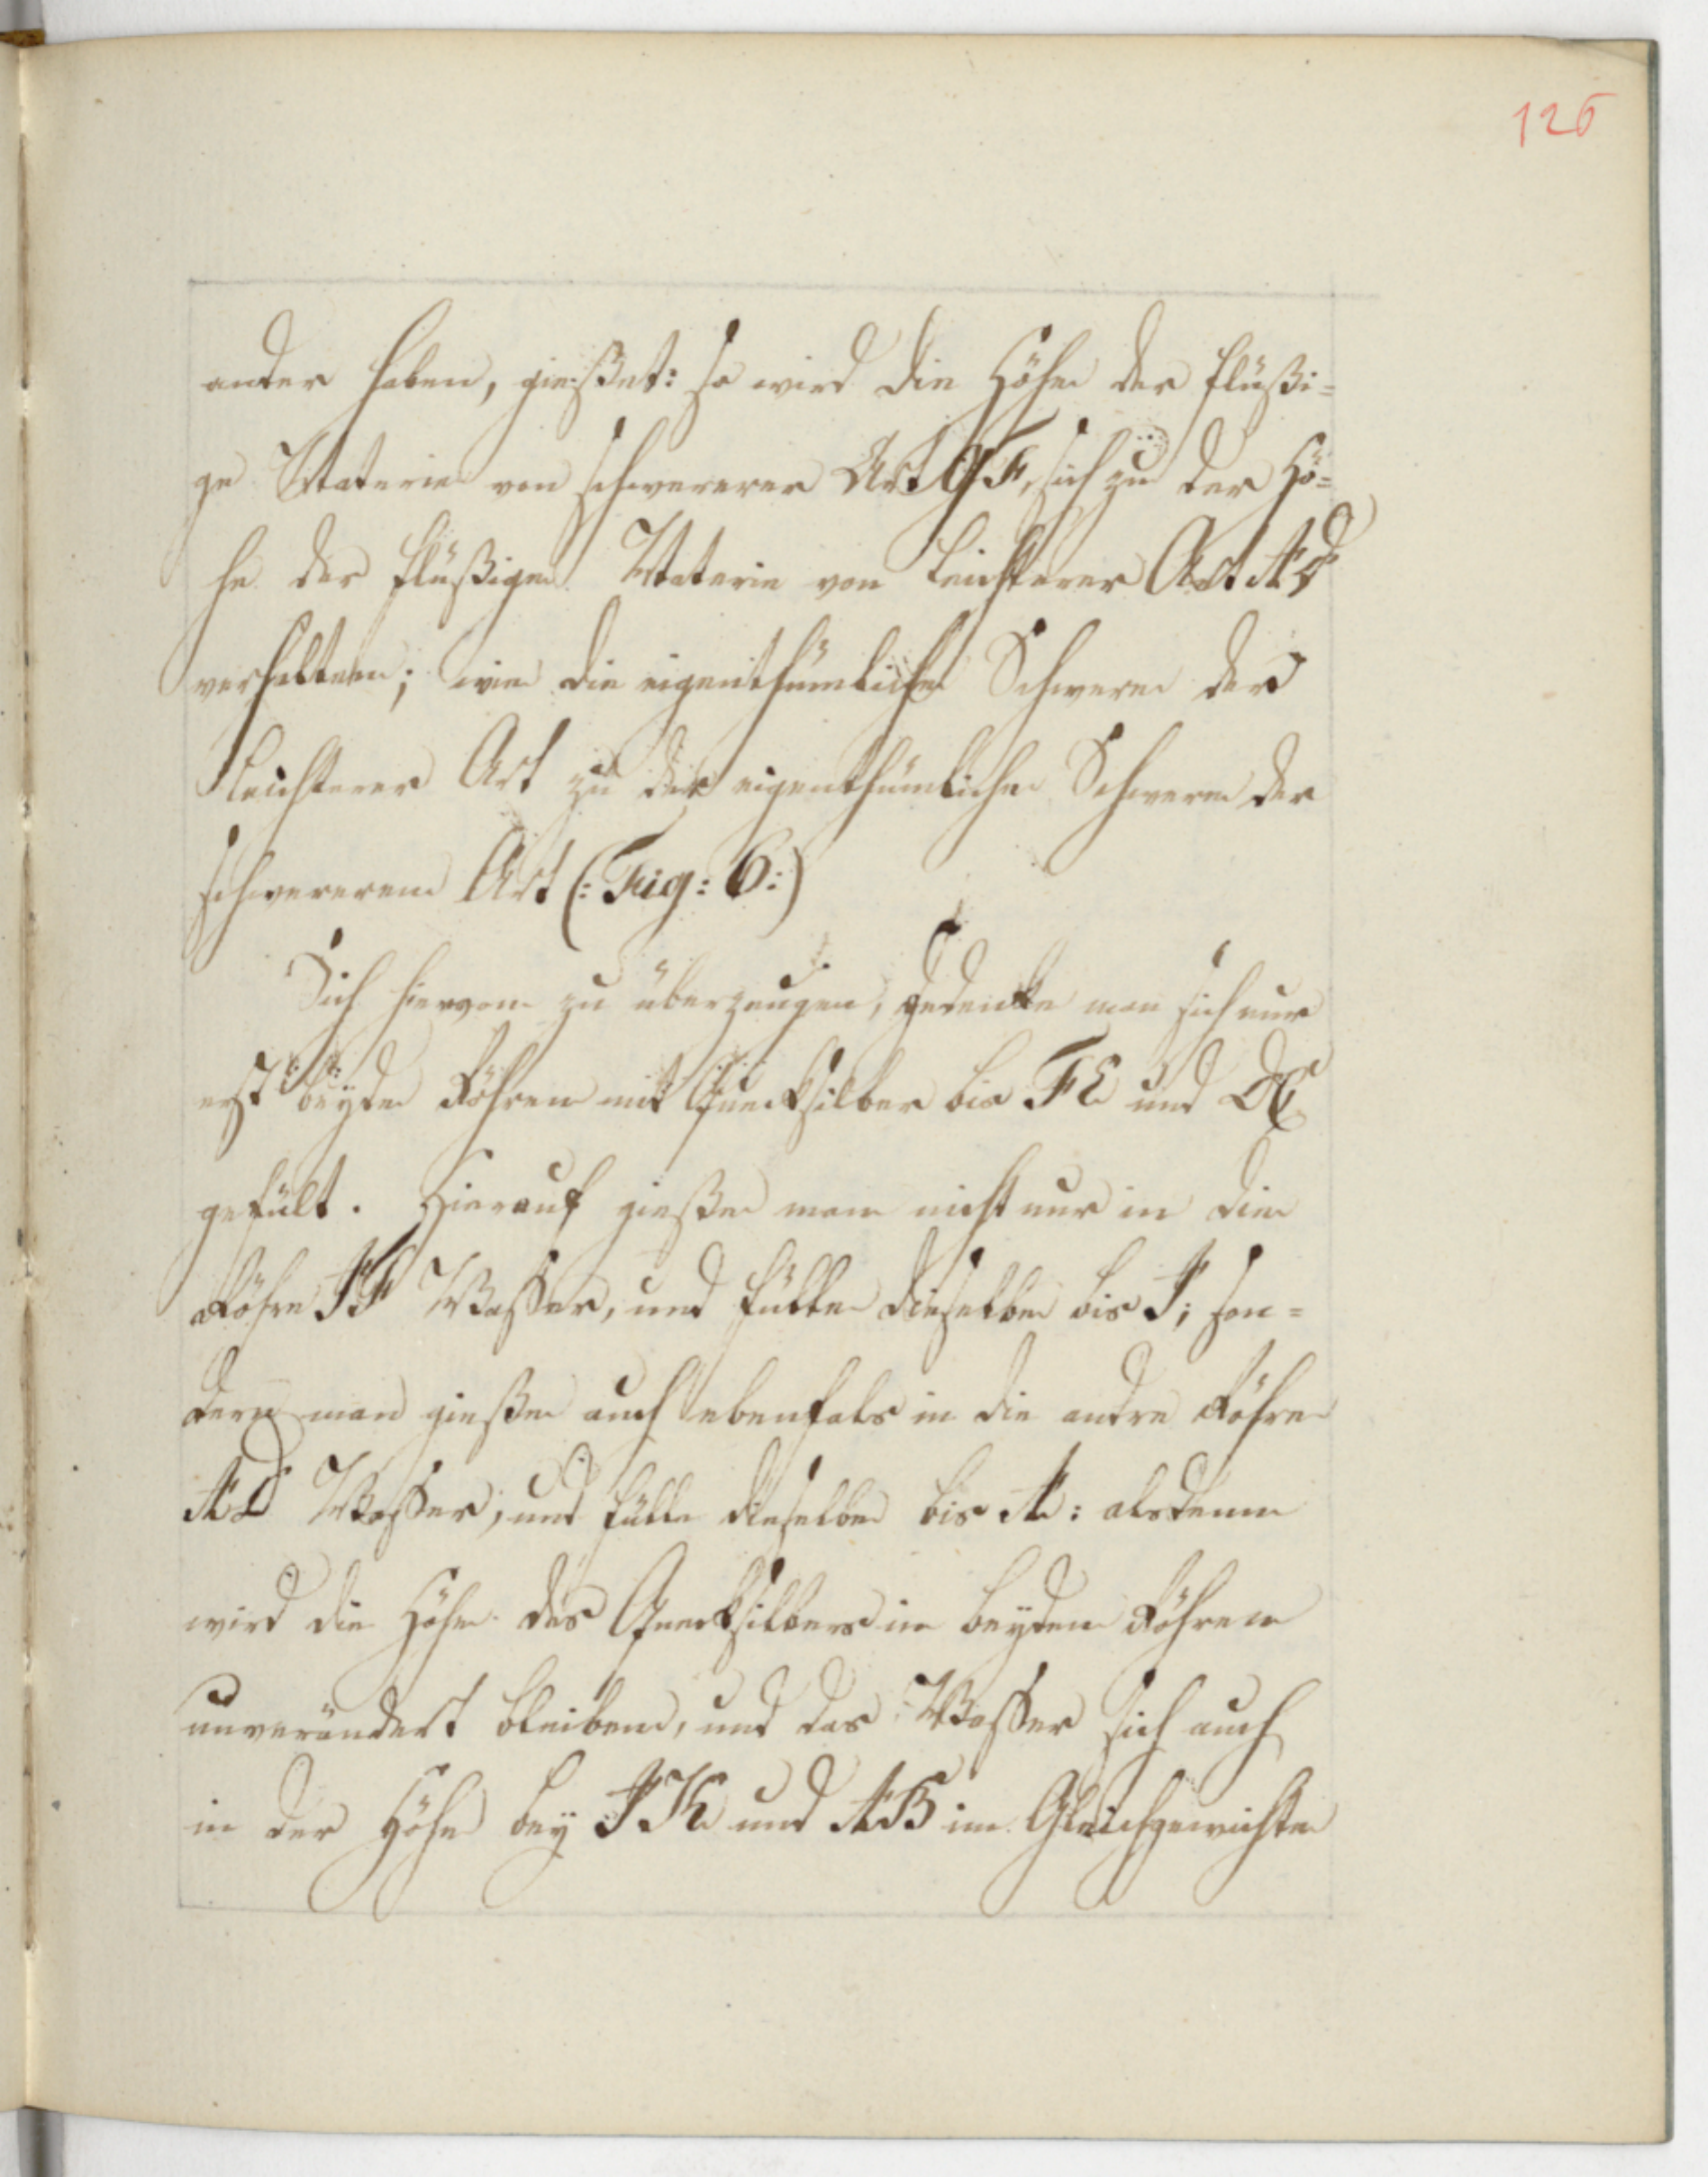 126
ander haben, gießet: so wird die Höhe der flüßi=
ge Materie von schwererer Art GF, sich zu der Hö=
he der flüßigen Materie von leichterer Art AD
verhalten; wie die eigenthümliche Schwere der
leichterer Art zu der eigenthümlichen Schwere der
schwereren Art (: Fig: 6:)
Sich hiervon zu überzeugen, gedencke man sich nur
erst beyde Röhren mit Quecksilber bis FE und DC
gefült. Hierauf gieße man nicht nur in die
Röhre JF Waßer, und fülle dieselbe bis J; son=
dern man gieße auch ebenfals in die andre Röhre
AD Waßer, und fülle dieselbe bis A: alsdenn
wird die Höhe des Quecksilbers in beyden Röhren
unverändert bleiben, und das Waßer sich auch
in der Höhe bey JK und AB im Gleichgewichte